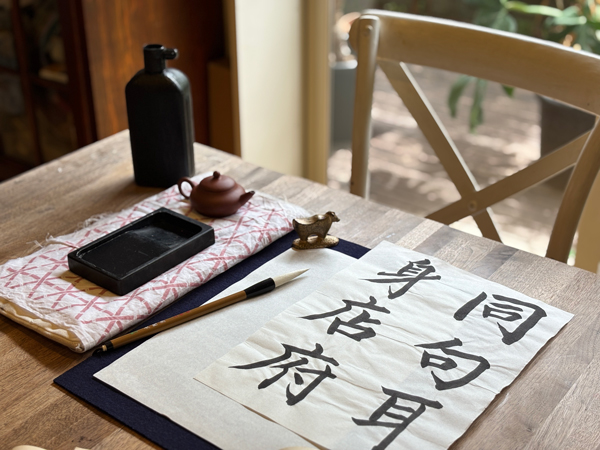 同句耳
身店府